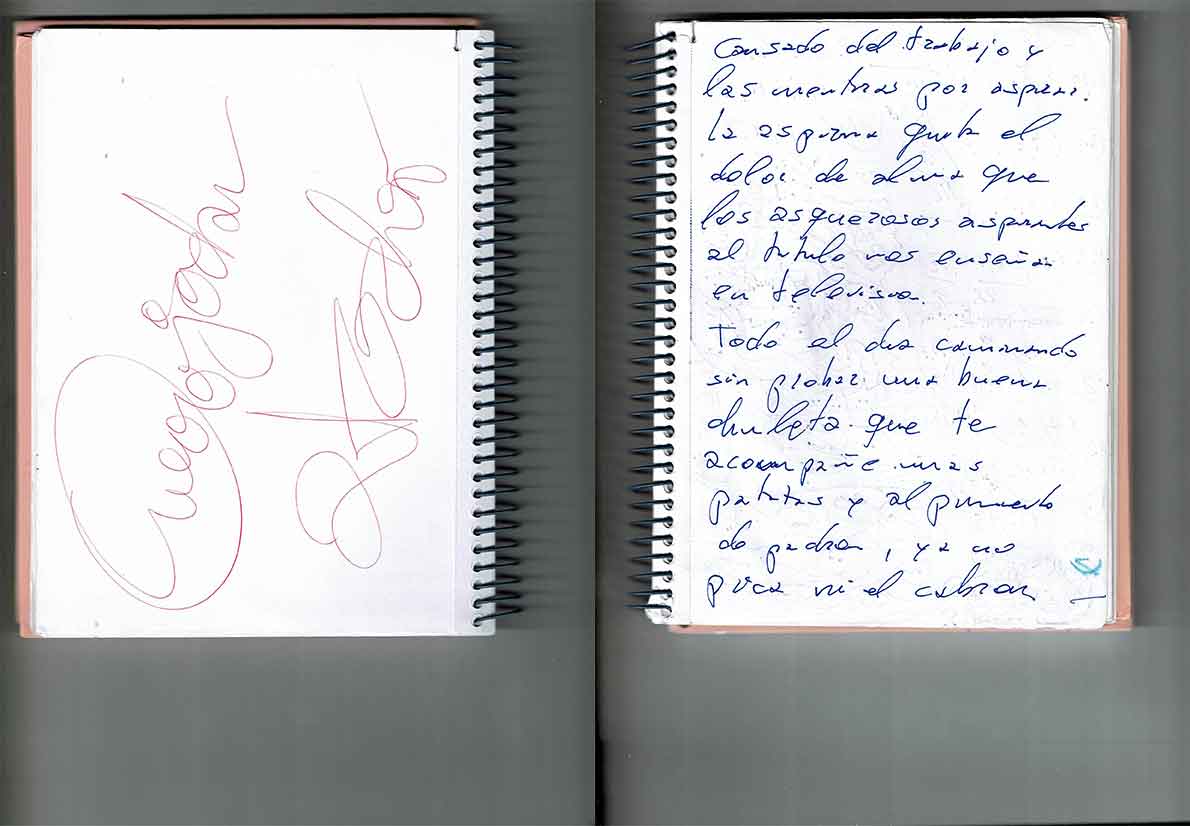 Cansado del trabajo y
las mentiras por aspirar.
La aspirina quita el
dolor de alma que
los asquerosos aspirantes
al titulo nos enseñan
en television.
Todo el dia caminando
sin probar una buena
chuleta que te
acompañe unas
patatas y al pimiento
de padron, ya no
pica ni el cabron